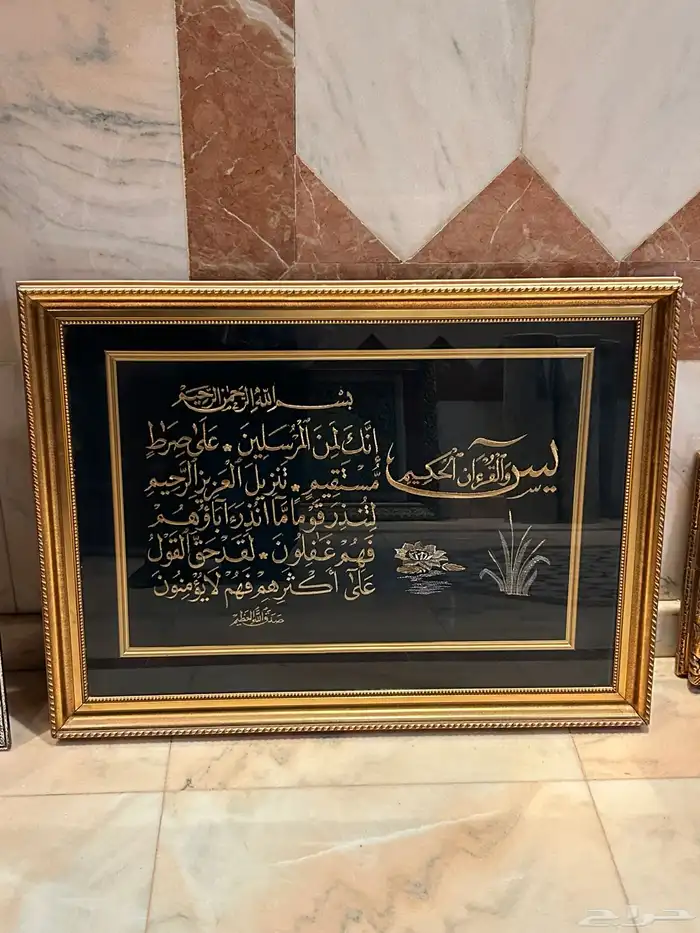 بسم الله الرحمن الرحيم
يس والقرءان الحكيم
إنك لمن المرسلين * على صرط
مستقيم * تنزيل العزيز الرحيم
لتنذر قوما ما أنذر ءاباؤهم
فهم غفلون * لقد حق القول
على أكثرهم فهم لا يؤمنون
صدق الله العظيم
حراج